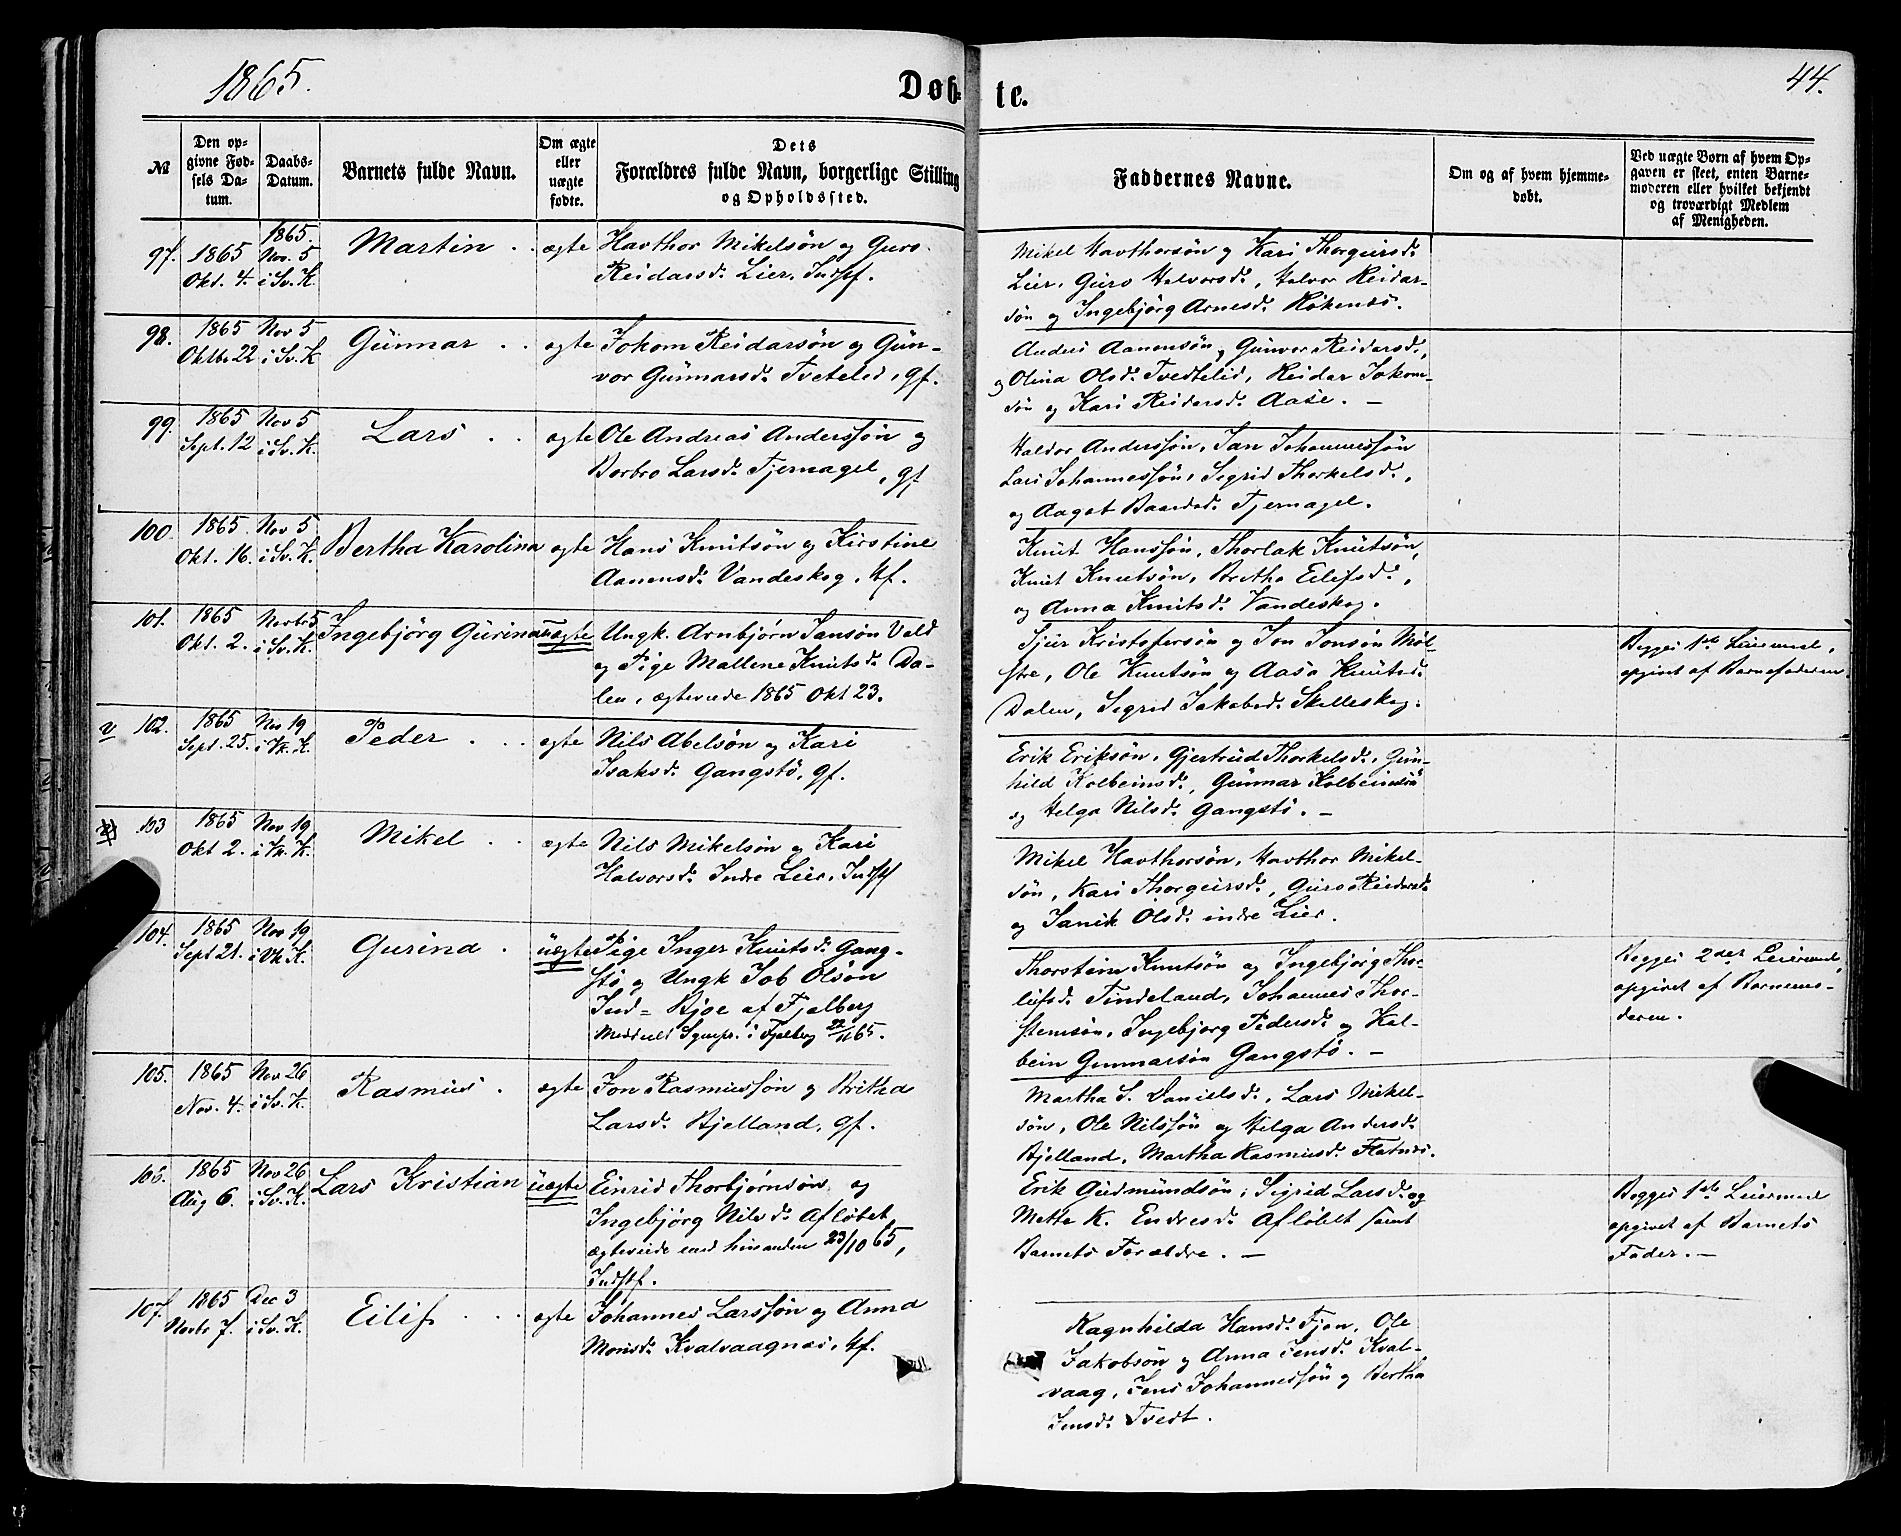 1865.
Døb-
te.
44.
№
Den op-
givne Fød-
sels Da-
tum.
Daabs-
Datum.
Barnets fulde Navn.
Om ægte
eller
uægte
fødte.
Dets
Forældres fulde Navn, borgerlige Stilling
og Opholdssted.
Faddernes Navne.
Om og af hvem hjemme-
døbt.
Ved uægte Børn af hvem Op-
gaven er skeet, enten Barne-
moderen eller hvilket bekjendt
og troværdigt Medlem
af Menigheden.
97.
1865
Okt. 4.
1865.
Nov. 5
i Sv. K.
Martin
ægte
Havthor Mikelsön og Guro
Reidarsd. Lier. Indsf.
Mikel Havthorsön og Kari Thorgeirsd.
Lier. Guro Halvorsd., Halvor Reidar-
sön og Ingebjörg Arnesd. Rökenes.
98.
1865
Oktbr 22
Nov 5
i Sv. K.
Gunnar
ægte
Jokom Reidarsön og Gun-
vor Gunnarsd. Tvetelid, gf.
Anders Aanensön, Gunvor Reidarsd.,
og Olina Olsd. Tvedtelid, Reidar Jokom-
sön og Kari Reidarsd. Aase. —
99.
1865
Sept. 12
Nov 5
i Sv. K.
Lars
ægte
Ole Andreas Anderssön og
Borbro Larsd. Tjernagel, gf
Haldor Anderssön, Jan Johannessön
Lars Johannessön, Sigrid Thorkelsd.,
og Aagot Baardsd. Tjernagel.
100.
1865
Okt. 16.
Nov 5
i Sv. K.
Bertha Karolina
ægte
Hans Knutsön og Kirstine
Aanensd. Vandeskog, Hf.
Knut Hanssön, Thorlak Knutsön,
Knut Knutsön, Britha Eilifsd.,
og Anna Knutsd. Vandeskog.
101.
1865
Okt. 2.
Novbr 5
i Sv. K.
Ingebjörg Gurina
uægte
Ungk. Arnbjørn Jansön Vald
og Pige Mallene Knutsd. Da-
len, ægteviede 1865 Okt 23.
Sjur Kristofersön og Jon Jonsön Möl-
stre, Ole Knutsön og Aasa Knutsd.
Dalen, Sigrid Jakobsd. Skelleskog.
Begges 1ste Leiermaal,
opgivet af Barnefaderen.
v
102.
1865
Sept. 25.
Nov 19
i Vk. K.
Peder
ægte
Nils Abelsön og Kari
Isaksd. Gangstö, gf.
Erik Eriksön, Gjertrud Thorkelsd., Gun-
hild Kolbeinsd., Gunnar Kolbeinsön
og Helga Nilsd. Gangstö. —
103
1865
Okt 2.
Nov 19
i Vk. K.
Mikel
ægte
Nils Mikelsön og Kari
Halvorsd. Indre Lier. Indsf
Mikel Havthorsön, Havthor Mikel-
sön, Kari Thorgeirsd., Guro Reidarsd.
og Janik Olsd. indre Lier.
104.
1865
Sept 21.
Nov 19
i Vk K.
Gurina
uægte
Pige Inger Knutsd. Gang-
stö og Ungk Job Olsön
Ind= Bjoe af Fjelberg
Meddeelt Sognepr. i Fjelberg 22/11 65.
Thorstein Knutsön og Ingebjörg Tho-
leifsd. Tindeland, Johannes Thor-
steinsön, Ingebjorg Pedersd. og Kol-
bein Gunnarsön Gangstö. —
Begges 2det Leiermaal,
opgivet af Barnemo-
deren.
105.
1865
Nov. 4.
Nov 26
i Sv. K.
Rasmus
ægte
Jon Rasmussön og Britha
Larsd. Bjelland, gf.
Martha S. Danielsd., Lars Mikel-
sön, Ole Nilssön og Helga Andersd.
Bjelland, Martha Rasmusd. Flatnes.
106.
1865
Aug 6.
Nov 26
i Sv. K.
Lars Kristian
uægte
Einrid Thorbjørnsön og
Ingebjörg Nilsd. Afløbet,
ægteviede med hinanden 23/10 65,
Indsf.
Erik Gudmundsön, Sigrid Larsd. og
Mette K. Endresd. Afløbet samt
Barnets Forældre. —
Begges 1ste Leiermaal
opgivet af Barnets
Fader. —
107.
1865
Novbr 7.
Dec 3
i Sv. K.
Eilif
ægte
Johannes Larssön og Anna
Monsd. Kvalvaagnes, Hf.
Ragnhilda Hansd. Fjon, Ole
Jakobsön og Anna Jensd. Kval-
vaag, Jens Johannessön og Bertha
Jensd. Tvedt.